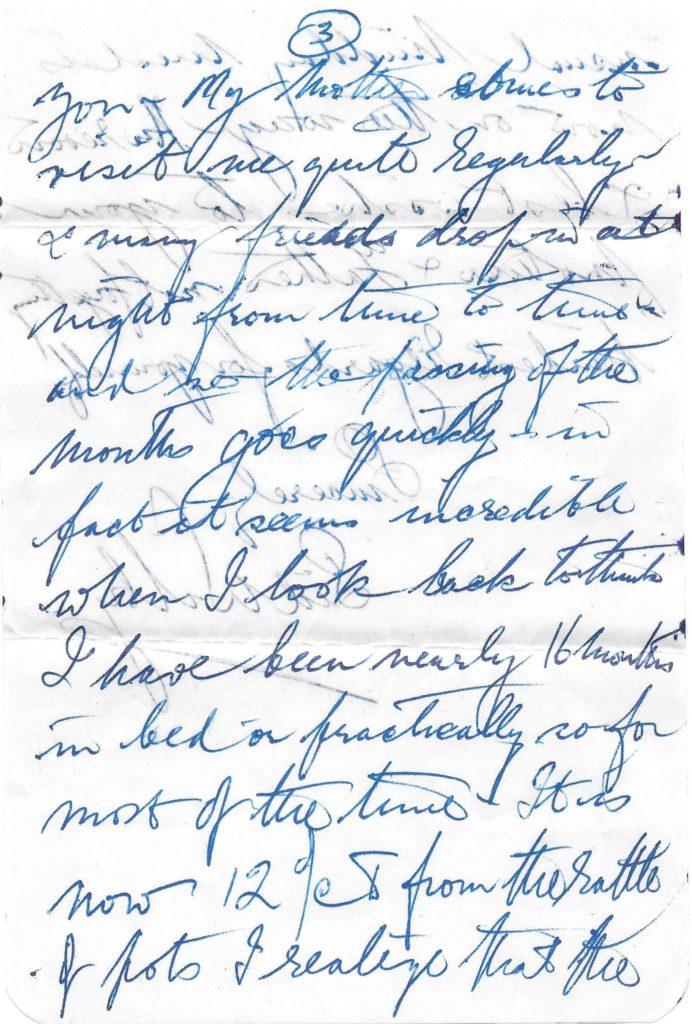 3
you - My Mother comes to
visit me quite regularly -
& many friends drop in at
night from time to time -
and so the passing of the
months goes quickly - in
fact it seems incredible
when I look back to think
I have been nearly 16 months
in bed or practically so for
most of the time - It is
now 12 o/c & from the rattle
of pots I realize that the